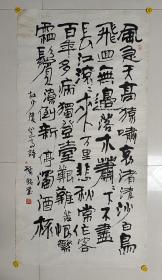 風急天高猿嘯哀渚清沙白鳥
飛回無邊落木蕭々下不盡
長江滾々來万里悲秋常作客
百年多病獨登臺艱難苦恨繁
霜鬢潦倒新停濁酒杯
杜少陵登高詩